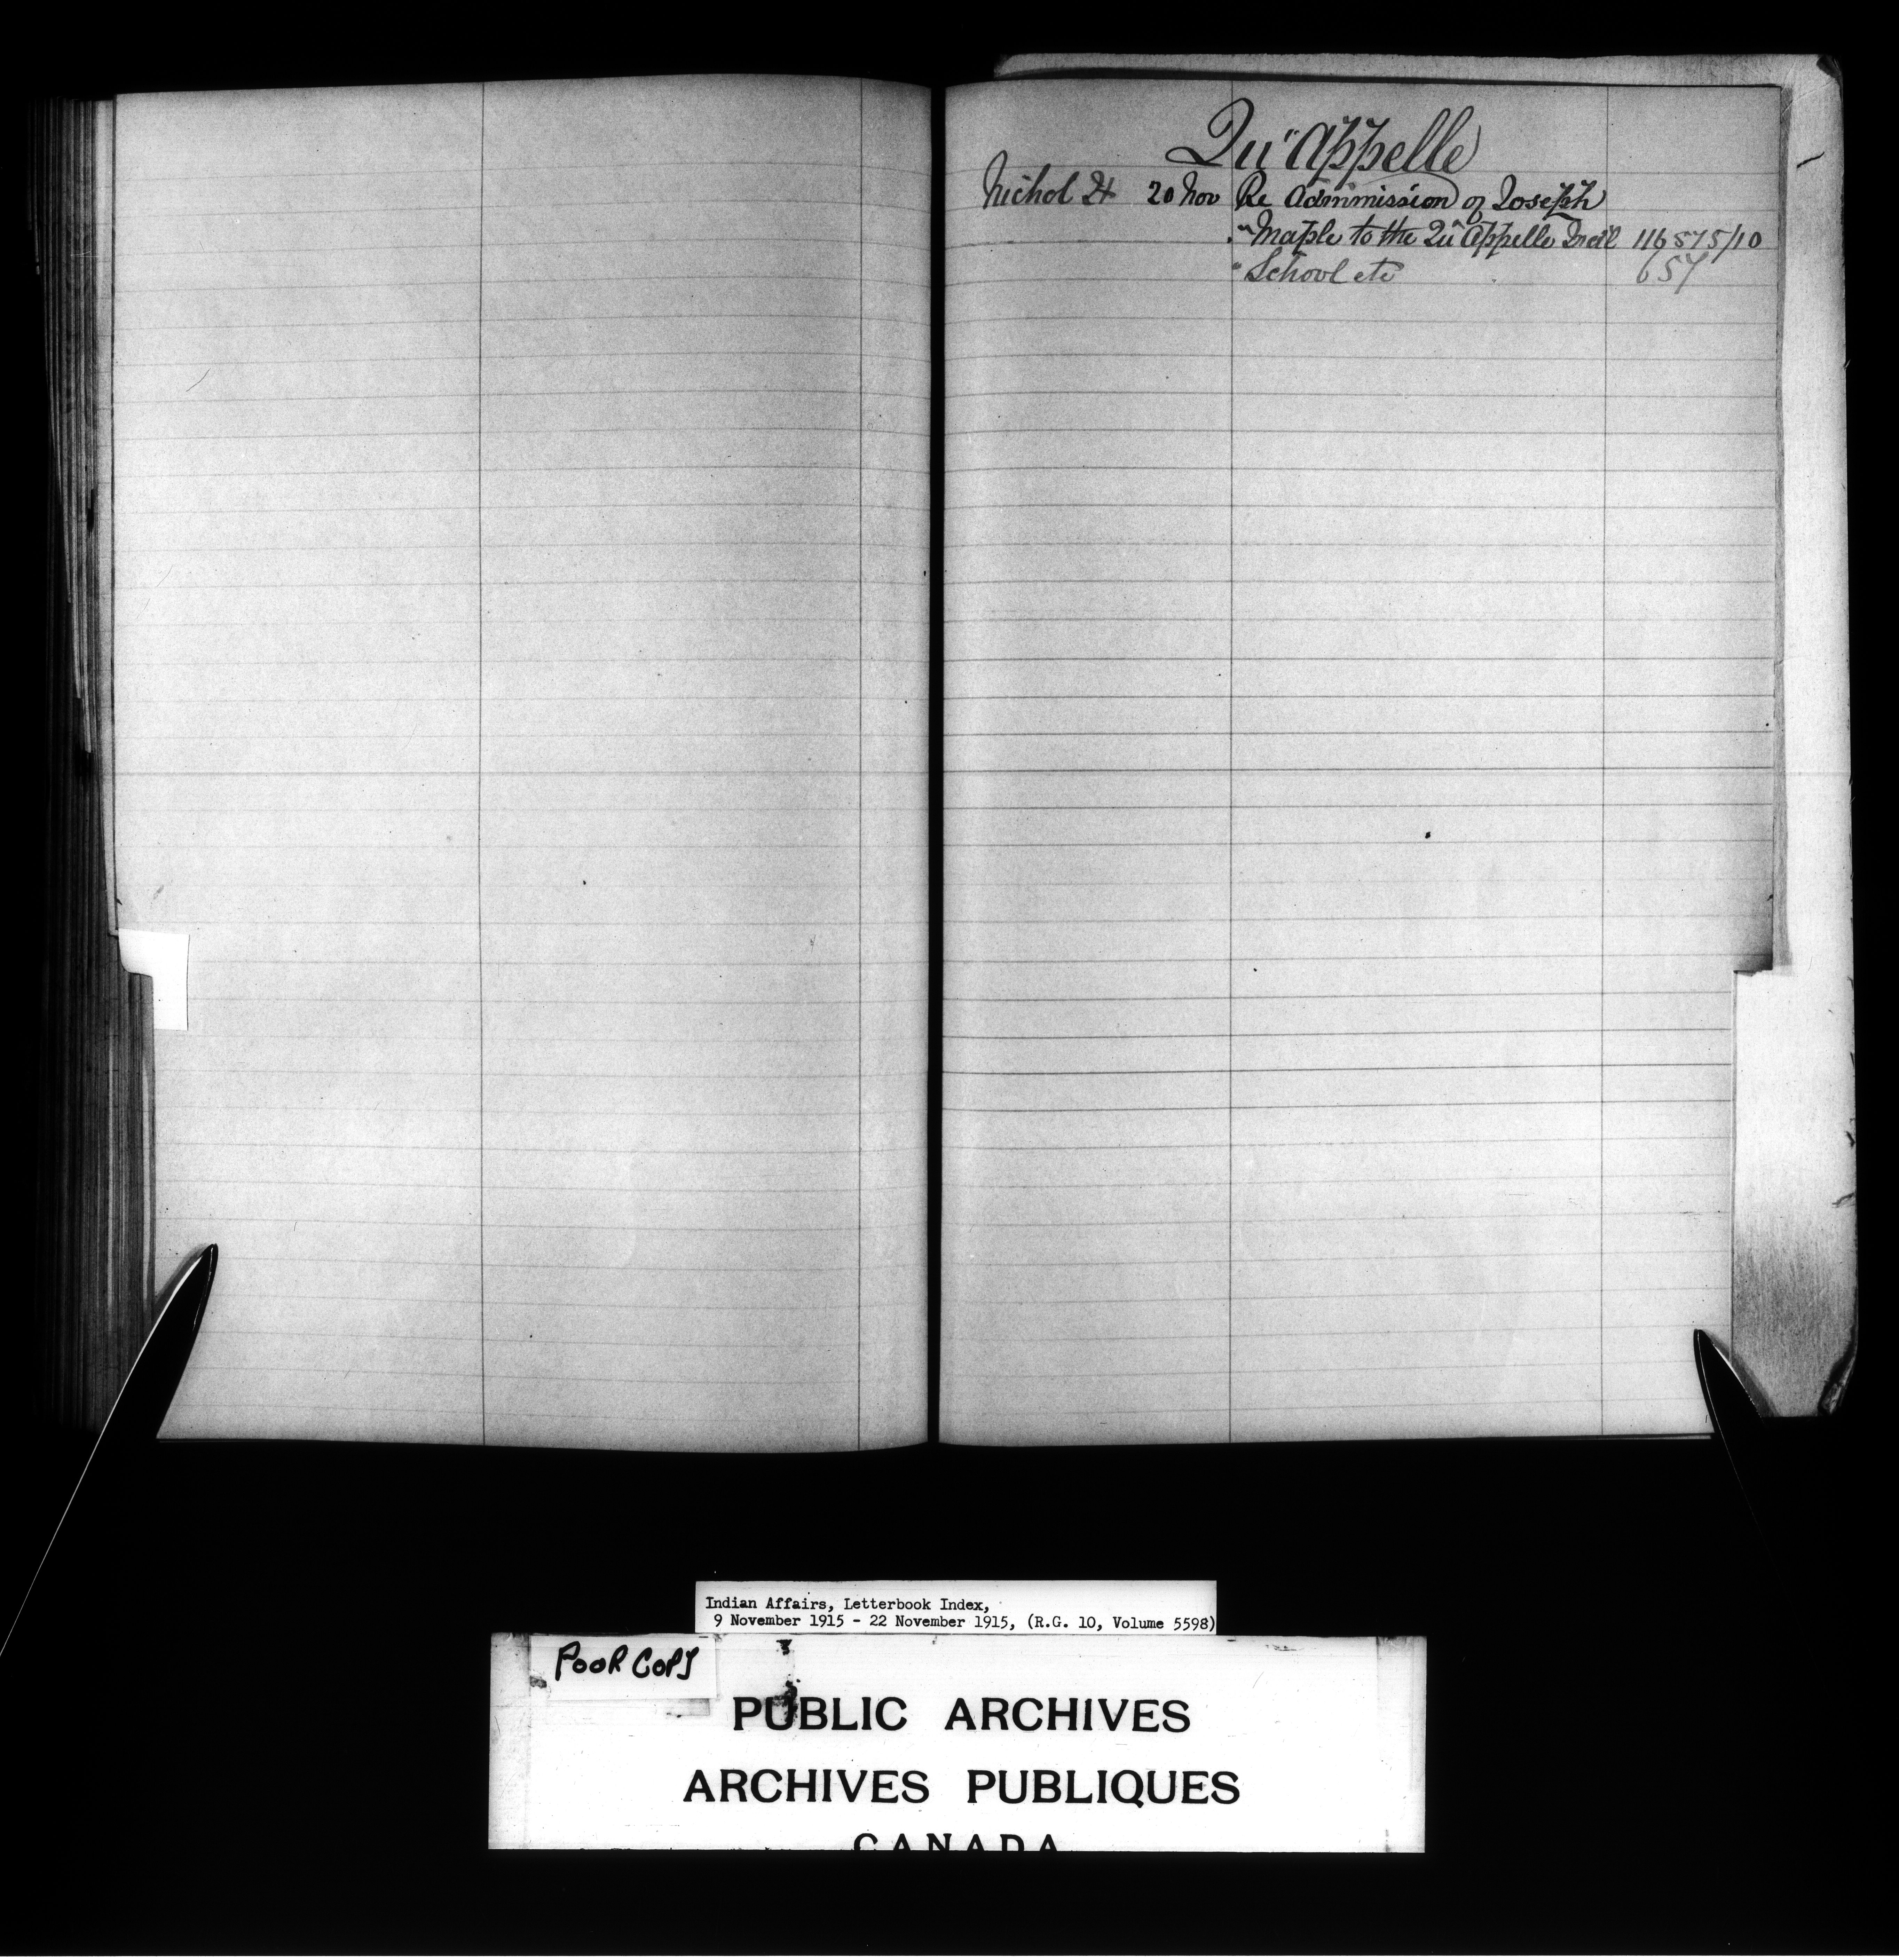 Qu'Appelle
Nichol H 20 Nov Re Admmission of Joseph
" Maple to the Qu'Appelle Indl 116 575/10
" School etc 657
Indian Affairs, Letterbook Index,
9 November 1915 - 22 November 1915, (R.G. 10, Volume 5598)
POOR COPY
PUBLIC ARCHIVES
ARCHIVES PUBLIQUES
CANADA